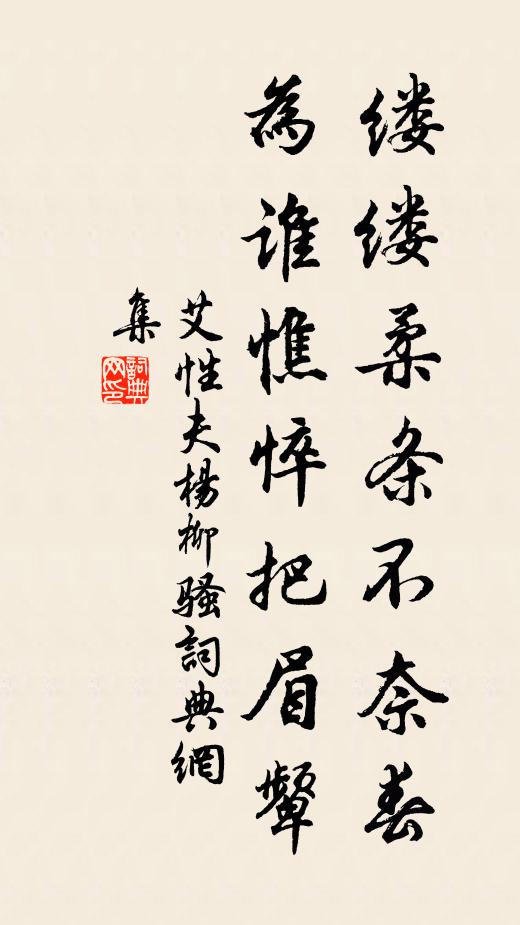 缕缕柔条不奈春
為谁憔悴把眉颦
艾性夫楊柳骚詞典網
集
詞典网印